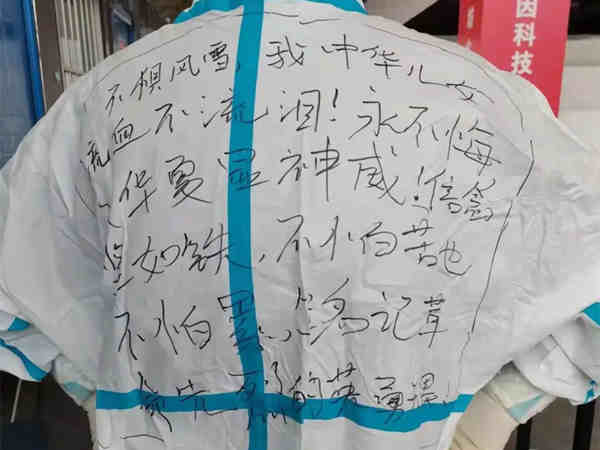 不惧风雪,我中华儿女
流血不流泪!永不悔
华夏显神威!信念
坚如铁,不怕苦也
不怕累,铭记革
命先烈的英勇
因科技